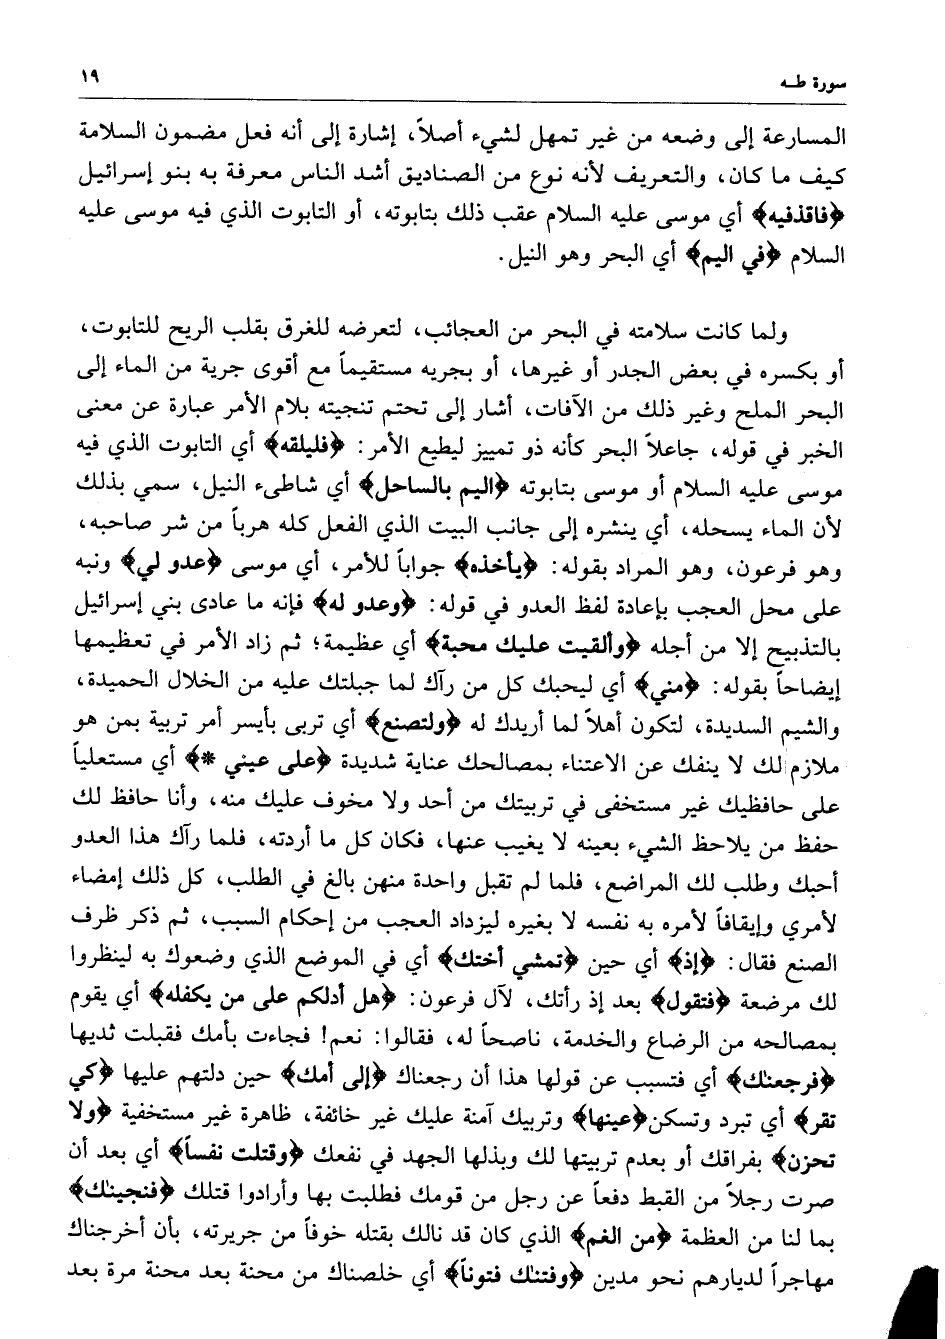 سورة طـه
١٩
المسارعة إلى وضعه من غير تمهل لشيء أصلاً، إشارة إلى أنه فعل مضمون السلامة
كيف ما كان، والتعريف لأنه نوع من الصناديق أشد الناس معرفة به بنو إسرائيل
﴿فاقذفيه﴾ أي موسى عليه السلام عقب ذلك بتابوته، أو التابوت الذي فيه موسى عليه
السلام ﴿في اليم﴾ أي البحر وهو النيل.
ولما كانت سلامته في البحر من العجائب، لتعرضه للغرق بقلب الريح للتابوت،
أو بكسره في بعض الجدر أو غيرها، أو بجريه مستقيماً مع أقوى جرية من الماء إلى
البحر الملح وغير ذلك من الآفات، أشار إلى تحتم تنجيته بلام الأمر عبارة عن معنى
الخبر في قوله، جاعلاً البحر كأنه ذو تمييز ليطيع الأمر: ﴿فليلقه﴾ أي التابوت الذي فيه
موسى عليه السلام أو موسى بتابوته ﴿اليم بالساحل﴾ أي شاطىء النيل، سمي بذلك
لأن الماء يسحله، أي ينشره إلى جانب البيت الذي الفعل كله هرباً من شر صاحبه،
وهو فرعون، وهو المراد بقوله: ﴿يأخذه﴾ جواباً للأمر، أي موسى ﴿عدو لي﴾ ونبه
على محل العجب بإعادة لفظ العدو في قوله: ﴿وعدو له﴾ فإنه ما عادى بني إسرائيل
بالتذبيح إلا من أجله ﴿وألقيت عليك محبة﴾ أي عظيمة؛ ثم زاد الأمر في تعظيمها
إيضاحاً بقوله: ﴿مني﴾ أي ليحبك كل من رآك لما جبلتك عليه من الخلال الحميدة،
والشيم السديدة، لتكون أهلاً لما أريدك له ﴿ولتصنع﴾ أي تربى بأيسر أمر تربية بمن هو
ملازم لك لا ينفك عن الاعتناء بمصالحك عناية شديدة ﴿على عيني *﴾ أي مستعلياً
على حافظيك غير مستخفى في تربيتك من أحد ولا مخوف عليك منه، وأنا حافظ لك
حفظ من يلاحظ الشيء بعينه لا يغيب عنها، فكان كل ما أردته، فلما رآك هذا العدو
أحبك وطلب لك المراضع، فلما لم تقبل واحدة منهن بالغ في الطلب، كل ذلك إمضاء
لأمري وإيقافاً لأمره به نفسه لا بغيره ليزداد العجب من إحكام السبب، ثم ذكر ظرف
الصنع فقال: ﴿إذ﴾ أي حين ﴿تمشي أختك﴾ أي في الموضع الذي وضعوك به لينظروا
لك مرضعة ﴿فتقول﴾ بعد إذ رأتك، لآل فرعون: ﴿هل أدلكم على من يكفله﴾ أي يقوم
بمصالحه من الرضاع والخدمة، ناصحاً له، فقالوا: نعم! فجاءت بأمك فقبلت ثديها
﴿فرجعنك﴾ أي فتسبب عن قولها هذا أن رجعناك ﴿إلى أمك﴾ حين دلتهم عليها ﴿كي
تقر﴾ أي تبرد وتسكن ﴿عينها﴾ وتربيك آمنة عليك غير خائفة، ظاهرة غير مستخفية ﴿ولا
تحزن﴾ بفراقك أو بعدم تربيتها لك وبذلها الجهد في نفعك ﴿وقتلت نفساً﴾ أي بعد أن
صرت رجلاً من القبط دفعاً عن رجل من قومك فطلبت بها وأرادوا قتلك ﴿فنجينك﴾
بما لنا من العظمة ﴿من الغم﴾ الذي كان قد نالك بقتله خوفاً من جريرته، بأن أخرجناك
مهاجراً لديارهم نحو مدين ﴿وفتنك فتوناً﴾ أي خلصناك من محنة بعد محنة مرة بعد